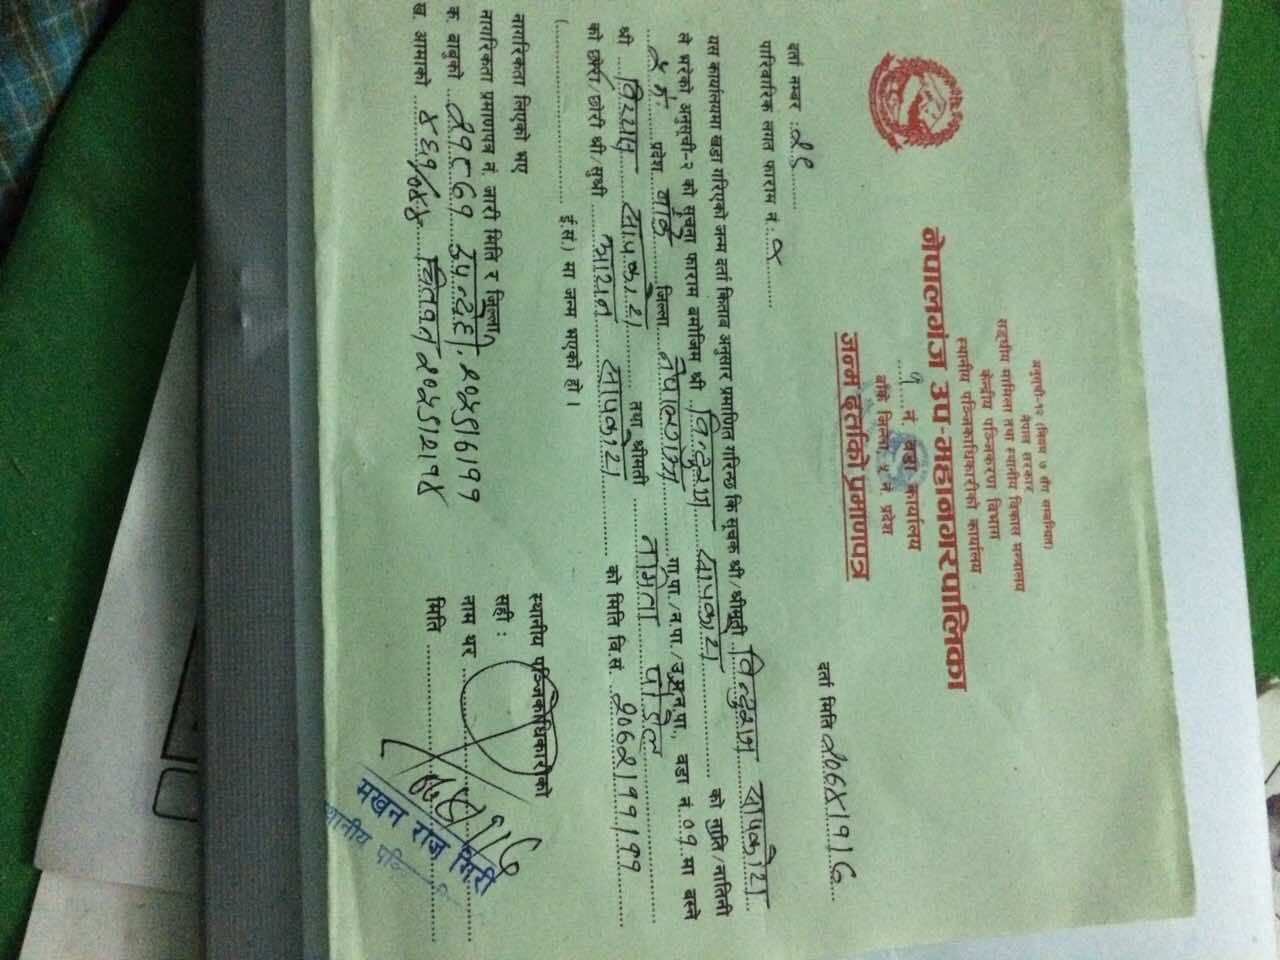 अनुसूची-१२ (नियम ७ सँग सम्बन्धित)
नेपाल सरकार
सङ्घीय मामिला तथा स्थानीय विकास मन्त्रालय
केन्द्रीय पञ्जिकरण विभाग
स्थानीय पञ्जिकाधिकारीको कार्यालय
नेपालगंज उप-महानगरपालिका
१ नं. वडा कार्यालय
बाँके जिल्ला, ५ नं. प्रदेश
जन्म दर्ताको प्रमाणपत्र
दर्ता मिति २०७४।१।८
दर्ता नम्बर : २९
पारिवारिक लगत फाराम नं. :
यस कार्यालयमा खडा गरिएको जन्म दर्ता किताब अनुसार प्रमाणित गरिन्छ कि सूचक श्री/श्रीमती विन्दुराज सापकोटा
ले भरेको अनुसूची-२ को सूचना फाराम बमोजिम श्री विन्दुराज सापकोटा को नाति/नातिनी
५ नं. प्रदेश बाँके जिल्ला नेपालगञ्ज गा.पा./न.पा./उ.म.न.पा., वडा नं. ०१ मा बस्ने
श्री सापकोटा तथा श्रीमती नमिता पौडेल
को छोरा/छोरी श्री/सुश्री आयन सापकोटा को मिति वि.सं. २०७२।११।११
(.......... ई.सं.) मा जन्म भएको हो ।
नागरिकता लिएको भए
नागरिकता प्रमाणपत्र नं. जारी मिति र जिल्ला
क. बाबुको २१८७१ रुपन्देही
ख. आमाको ४६१/ चितवन
स्थानीय पञ्जिकाधिकारीको
सही :
नाम थर
मिति
मखन राज गिरी
स्थानीय